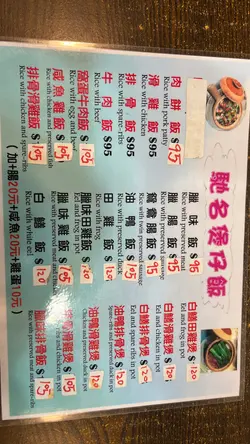 馳名煲仔飯
肉餅飯 $95
Rice with pork patty
滑雞飯 $95
Rice with chicken
排骨飯 $95
Rice with spare-ribs
牛肉飯 $95
Rice with beef
窩蛋牛肉飯 $105
Rice with egg and beef
咸魚雞飯 $105
Rice with chicken and preserved fish
排骨滑雞飯 $105
Rice with chicken and spare-ribs
臘味飯 $95
Rice with preserved meat
臘腸飯 $95
Rice with preserved sausage
鴛鴦腸飯 $95
Rice with two preserved sausage
油鴨飯 $105
Rice with preserved duck
田雞飯 $120
Rice with frog
臘味田雞飯
臘味雞飯 $105
Rice with preserved meat and chicken
白鱔飯 $120
Rice with white eel
白鱔田雞煲 $120
Eel and frog in pot
白鱔滑雞煲
Eel and chicken in pot
白鱔排骨煲
Eel and spare ribs in pot
油鴨排骨煲 $120
Spare-ribs and preserved duck in pot
油鴨滑雞煲 $120
臘味排骨飯 $105
Rice with preserved meat and spare-ribs
(加+腸20元+咸魚20元+雞蛋10元)